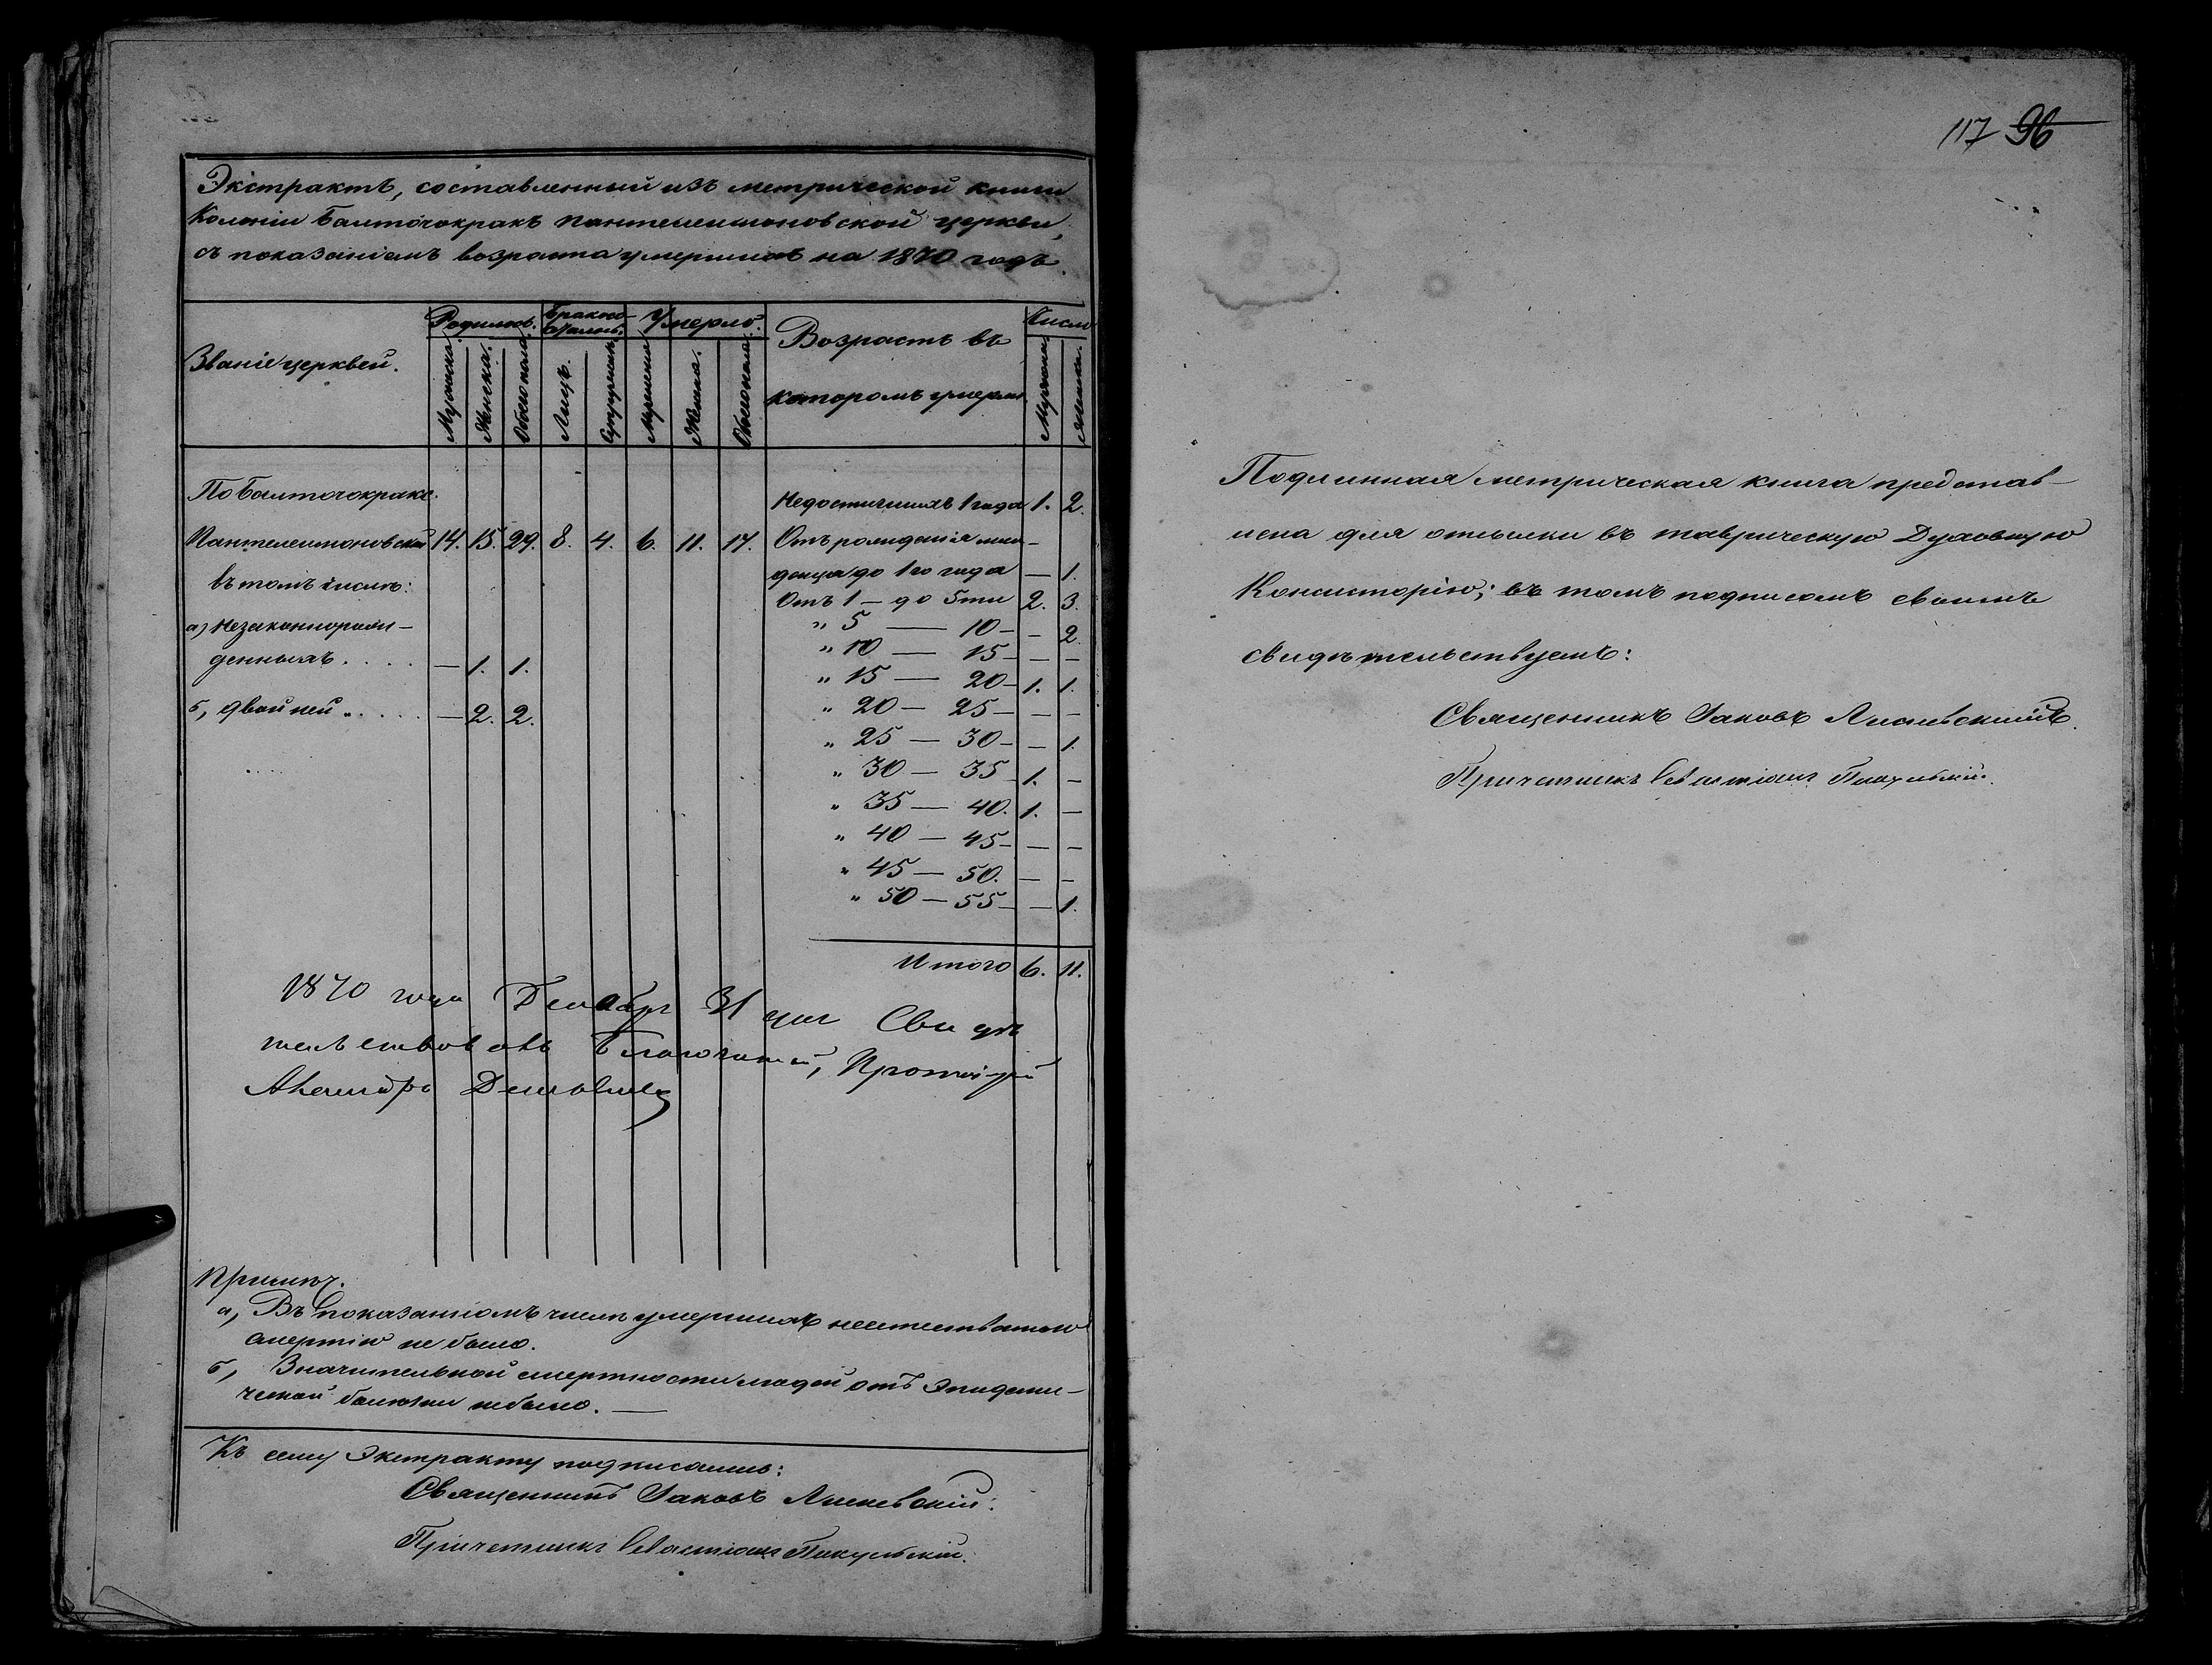 Экстрактъ, составленный изъ метрической книги
Колоніи Балточокракъ Пантелеимоновской церкви,
съ показаніемъ возраста умершихъ на 1870 годъ.
Званіе церквей.
Родилось.
Мужеска.
Женска.
Обоего пола.
Лицъ.
Супружн.
Умерло.
Мужеска
Женска.
Обоего пола.
Возрастъ въ
которомъ умерли.
Число
Мужеска
Женска.
По Балточокракс.
Недостигшихъ 1 года 1. 2.
Пантелеимоновской 14. 15. 29. 8. 4. 6. 11. 17. Отъ рожденія мла-
въ томъ числѣ:
денца до 1го года — 1.
Отъ 1 — до 5ти 2. 3.
а) Незаконнорож-
" 5 — 10 — — 2.
денныхъ . . . . — 1. 1.
" 10 — 15 — — —
" 15 — 20 — 1. 1.
б, двойней . . . . — 2. 2.
" 20 — 25 — — —
" 25 — 30 — — 1.
" 30 — 35 1. —
" 35 — 40. 1. —
" 40 — 45 — — —
" 45 — 50. — —
" 50 — 55 — — 1.
Итого 6. 11.
1870 года Декабря 31 дня Свидѣ
тельствовалъ Благочинный, Протоіерей
Примѣч.
а, Въ показанномъ числѣ умершихъ неестественною
смертію не было.
б, Значительной смертности людей отъ эпидеми-
ческой болѣзни не было. —
Къ сему Экстракту подписались:
Священникъ Іаковъ Лисневскій.
Причетникъ Севастіанъ Пакульскій.
117 96
Подлинная метрическая книга представ-
лена для отсылки въ таврическую Духовную
Консисторію; въ томъ подписомъ своимъ
свидѣтельствуемъ:
Священникъ Іаковъ
Причетникъ Севастіанъ Пакульскій.